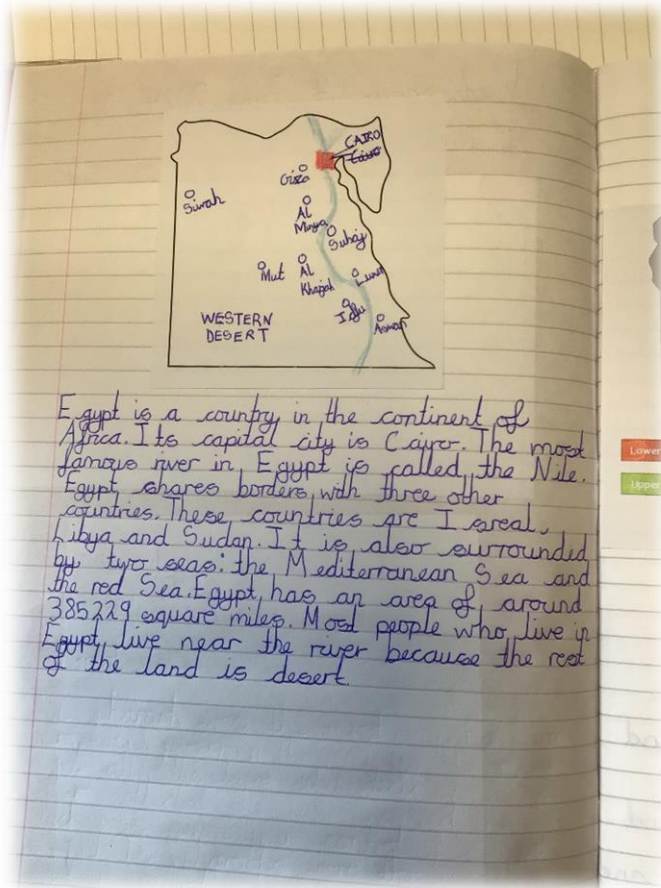 CAIRO
Cairo
Giza
Siwah
Al
Minya
Suhaj
Mut
Al
Kharjah
Luxor
Idfu
Aswan
WESTERN
DESERT
Egypt is a country in the continent of
Africa. Its capital city is Cairo. The most
famous river in Egypt is called the Nile.
Egypt shares borders with three other
countries. These countries are Isreal,
Libya and Sudan. It is also surrounded
by two seas: the Mediterranean Sea and
the red Sea. Egypt has an area of around
385229 square miles. Most people who live in
Egypt live near the river because the rest
of the land is desert.
Lower
Upper